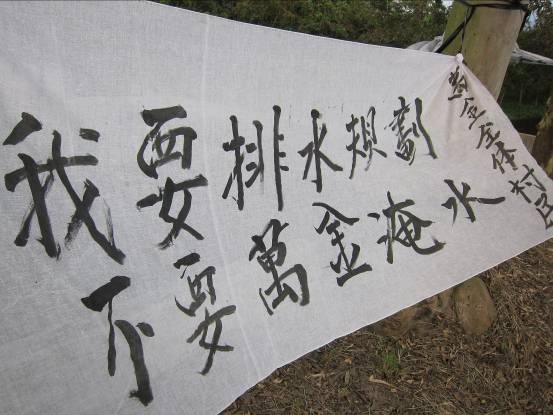 我要排水規劃
不要萬金淹水
萬金全体村民